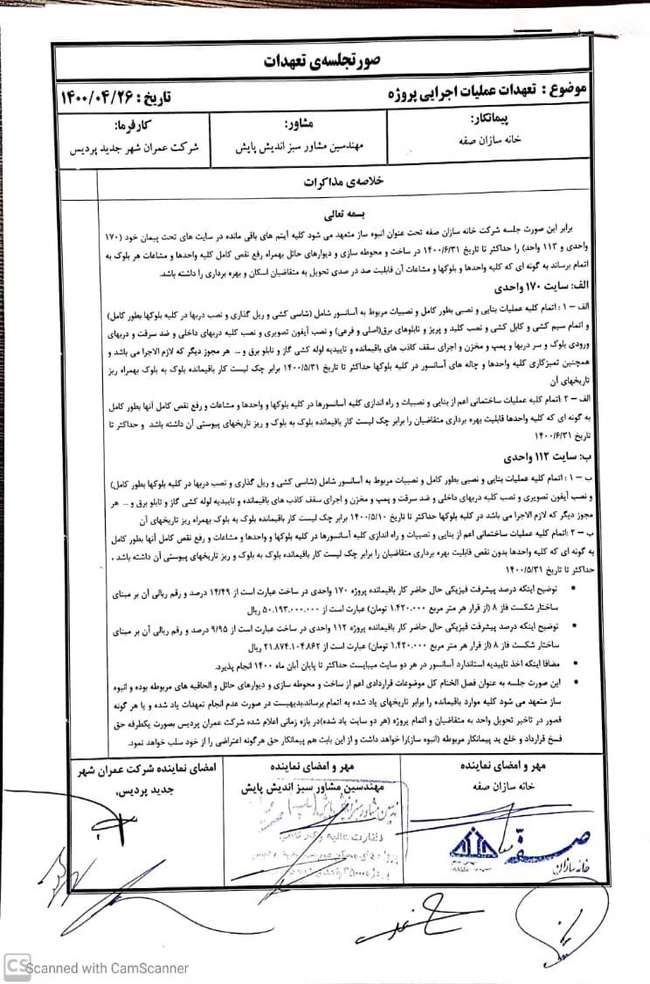 صورتجلسه‌ی تعهدات
موضوع : تعهدات عملیات اجرایی پروژه
تاریخ : ۱۴۰۰/۰۴/۲۶
پیمانکار:
خانه سازان صفه
مشاور:
مهندسین مشاور سبز اندیش پایش
کارفرما:
شرکت عمران شهر جدید پردیس
خلاصه‌ی مذاکرات
بسمه تعالی
برابر این صورت جلسه شرکت خانه سازان صفه تحت عنوان انبوه ساز متعهد می شود کلیه آیتم های باقی مانده در سایت های تحت پیمان خود (۱۷۰
واحدی و ۱۱۲ واحد) را حداکثر تا تاریخ ۱۴۰۰/۶/۳۱ در ساخت و محوطه سازی و دیوارهای حائل بهمراه رفع نقص کامل کلیه واحدها و مشاعات هر بلوک به
اتمام برساند به گونه ای که کلیه واحدها و بلوکها و مشاعات آن قابلیت صد در صدی تحویل به متقاضیان اسکان و بهره برداری را داشته باشد.
الف: سایت ۱۷۰ واحدی
الف – ۱ : اتمام کلیه عملیات بنایی و نصبی بطور کامل و نصبیات مربوط به آسانسور شامل (شاسی کشی و ریل گذاری و نصب دربها در کلیه بلوکها بطور کامل)
و اتمام سیم کشی و کابل کشی و نصب کلید و پریز و تابلوهای برق(اصلی و فرعی) و نصب آیفون تصویری و نصب کلیه دربهای داخلی و ضد سرقت و دربهای
ورودی بلوک و سر دربها و پمپ و مخزن و اجرای سقف کاذب های باقیمانده و تاییدیه لوله کشی گاز و تابلو برق و ... هر مجوز دیگر که لازم الاجرا می باشد و
همچنین تمیزکاری کلیه واحدها و چاله های آسانسور در کلیه بلوکها حداکثر تا تاریخ ۱۴۰۰/۵/۳۱ برابر چک لیست کار باقیمانده بلوک به بلوک بهمراه ریز
تاریخهای آن
الف – ۲ :اتمام کلیه عملیات ساختمانی اعم از بنایی و نصبیات و راه اندازی کلیه آسانسورها در کلیه بلوکها و واحدها و مشاعات و رفع نقص کامل آنها بطور کامل
به گونه ای که کلیه واحدها قابلیت بهره برداری متقاضیان را برابر چک لیست کار باقیمانده بلوک به بلوک و ریز تاریخهای پیوستی آن داشته باشد و حداکثر تا
تاریخ ۱۴۰۰/۶/۳۱
ب: سایت ۱۱۲ واحدی
ب – ۱ : اتمام کلیه عملیات بنایی و نصبی بطور کامل و نصبیات مربوط به آسانسور شامل (شاسی کشی و ریل گذاری و نصب دربها در کلیه بلوکها بطور کامل)
و نصب آیفون تصویری و نصب کلیه دربهای داخلی و ضد سرقت و پمپ و مخزن و اجرای سقف کاذب های باقیمانده و تاییدیه لوله کشی گاز و تابلو برق و ... هر
مجوز دیگر که لازم الاجرا می باشد در کلیه بلوکها حداکثر تا تاریخ ۱۴۰۰/۵/۱۰ برابر چک لیست کار باقیمانده بلوک به بلوک بهمراه ریز تاریخهای آن
ب – ۲ :اتمام کلیه عملیات ساختمانی اعم از بنایی و نصبیات و راه اندازی کلیه آسانسورها در کلیه بلوکها و واحدها و مشاعات و رفع نقص کامل آنها بطور کامل
به گونه ای که کلیه واحدها بدون نقص قابلیت بهره برداری متقاضیان را برابر چک لیست کار باقیمانده بلوک به بلوک و ریز تاریخهای پیوستی آن داشته باشد .
حداکثر تا تاریخ ۱۴۰۰/۵/۳۱
• توضیح اینکه درصد پیشرفت فیزیکی حال حاضر کار باقیمانده پروژه ۱۷۰ واحدی در ساخت عبارت است از ۱۴/۴۹ درصد و رقم ریالی آن بر مبنای
ساختار شکست فاز ۸ (از قرار هر متر مربع ۱.۴۲۰.۰۰۰ تومان) عبارت است از ۵۰.۱۹۳.۰۰۰.۰۰۰ ریال
• توضیح اینکه درصد پیشرفت فیزیکی حال حاضر کار باقیمانده پروژه ۱۱۲ واحدی در ساخت عبارت است از ۹/۹۵ درصد و رقم ریالی آن بر مبنای
ساختار شکست فاز ۸ (از قرار هر متر مربع ۱.۴۲۰.۰۰۰ تومان) عبارت است از ۲۱.۸۷۴.۱۰۴.۸۶۲ ریال
• مضافا اینکه اخذ تاییدیه استاندارد آسانسور در هر دو سایت میبایست حداکثر تا پایان آبان ماه ۱۴۰۰ انجام پذیرد.
• این صورت جلسه به عنوان فصل الختام کل موضوعات قراردادی اعم از ساخت و محوطه سازی و دیوارهای حائل و الحاقیه های مربوطه بوده و انبوه
ساز متعهد می شود کلیه موارد باقیمانده را برابر تاریخهای یاد شده به اتمام برساند.بدیهیست در صورت عدم انجام تعهدات یاد شده و یا هر گونه
قصور در تاخیر تحویل واحد به متقاضیان و اتمام پروژه (هر دو سایت یاد شده)در بازه زمانی اعلام شده شرکت عمران پردیس بصورت یکطرفه حق
فسخ قرارداد و خلع ید پیمانکار مربوطه (انبوه ساز)را خواهد داشت و از این بابت هم پیمانکار حق هرگونه اعتراضی را از خود سلب خواهد نمود.
مهر و امضای نماینده
خانه سازان صفه
مهر و امضای نماینده
مهندسین مشاور سبز اندیش پایش
امضای نماینده شرکت عمران شهر
جدید پردیس.
صفه
خانه سازان
CS Scanned with CamScanner